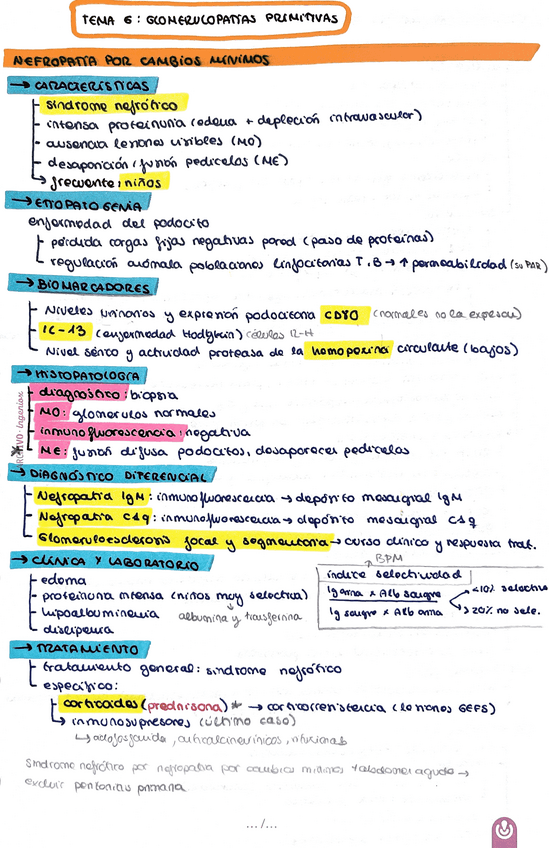 TEMA 6: GLOMERULOPATÍAS PRIMITIVAS
NEFROPATÍA POR CAMBIOS MÍNIMOS
→ CARACTERÍSTICAS
síndrome nefrótico
intensa proteinuria (edema + depleción intravascular)
ausencia lesiones visibles (MO)
desaparición/fusión pedicelos (ME)
frecuente: niños
→ ETIOPATOGENIA
enfermedad del podocito
pérdida cargas fijas negativas pared (paso de proteínas)
regulación anómala poblaciones linfocitarias T, B → ↑ permeabilidad (su PAR)
→ BIOMARCADORES
Niveles urinarios y expresión podocitaria CD80 (normales no la expresan)
IL-13 (enfermedad Hodgkin) células R-H
Nivel sérico y actividad proteasa de la hemopexina circulante (bajos)
→ HISTOPATOLOGÍA
diagnóstico: biopsia
MO: glomérulos normales
inmunofluorescencia: negativa
* ME: fusión difusa podocitos, desaparecen pedicelos
→ DIAGNÓSTICO DIFERENCIAL
Nefropatía IgM: inmunofluorescencia → depósito mesangial IgM
Nefropatía C1q: inmunofluorescencia → depósito mesangial C1q
Glomeruloesclerosis focal y segmentaria → curso clínico y respuesta trat.
→ CLÍNICA Y LABORATORIO
edema
proteinuria intensa (niños muy selectiva)
↓
albúmina y transferrina
hipoalbuminemia
dislipemia
BPM
índice selectividad
Ig orina x Alb sangre
Ig sangre x Alb orina
<10% selectiva
>20% no sele.
→ TRATAMIENTO
tratamiento general: síndrome nefrótico
específico:
corticoides (prednisona)* → corticorresistencia (lesiones GEFS)
inmunosupresores (último caso)
ciclofosfamida, anticalcineurínicos, rituximab
Síndrome nefrótico por nefropatía por cambios mínimos + abdomen agudo →
excluir peritonitis primaria
.../...